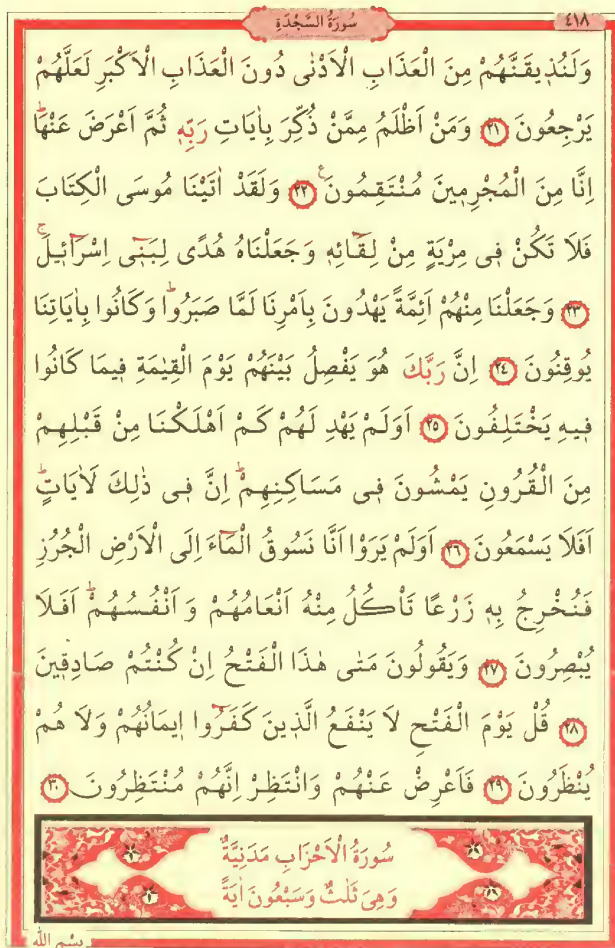 سُورَةُ السَّجْدَةِ
٤١٨
وَلَنُذ۪يقَنَّهُمْ مِنَ الْعَذَابِ الْاَدْنٰى دُونَ الْعَذَابِ الْاَكْبَرِ لَعَلَّهُمْ
يَرْجِعُونَ ﴿٢١﴾ وَمَنْ اَظْلَمُ مِمَّنْ ذُكِّرَ بِاٰيَاتِ رَبِّه۪ ثُمَّ اَعْرَضَ عَنْهَاۜ
اِنَّا مِنَ الْمُجْرِم۪ينَ مُنْتَقِمُونَ۟ ﴿٢٢﴾ وَلَقَدْ اٰتَيْنَا مُوسَى الْكِتَابَ
فَلَا تَكُنْ ف۪ى مِرْيَةٍ مِنْ لِقَٓائِه۪ وَجَعَلْنَاهُ هُدًى لِبَن۪ٓى اِسْرَٓائ۪يلَۚ
﴿٢٣﴾ وَجَعَلْنَا مِنْهُمْ اَئِمَّةً يَهْدُونَ بِاَمْرِنَا لَمَّا صَبَرُواۜ وَكَانُوا بِاٰيَاتِنَا
يُوقِنُونَ ﴿٢٤﴾ اِنَّ رَبَّكَ هُوَ يَفْصِلُ بَيْنَهُمْ يَوْمَ الْقِيٰمَةِ ف۪يمَا كَانُوا
ف۪يهِ يَخْتَلِفُونَ ﴿٢٥﴾ اَوَلَمْ يَهْدِ لَهُمْ كَمْ اَهْلَكْنَا مِنْ قَبْلِهِمْ
مِنَ الْقُرُونِ يَمْشُونَ ف۪ى مَسَاكِنِهِمْۜ اِنَّ ف۪ى ذٰلِكَ لَاٰيَاتٍۜ
اَفَلَا يَسْمَعُونَ ﴿٢٦﴾ اَوَلَمْ يَرَوْا اَنَّا نَسُوقُ الْمَٓاءَ اِلَى الْاَرْضِ الْجُرُزِ
فَنُخْرِجُ بِه۪ زَرْعًا تَأْكُلُ مِنْهُ اَنْعَامُهُمْ وَاَنْفُسُهُمْۜ اَفَلَا
يُبْصِرُونَ ﴿٢٧﴾ وَيَقُولُونَ مَتٰى هٰذَا الْفَتْحُ اِنْ كُنْتُمْ صَادِق۪ينَ
﴿٢٨﴾ قُلْ يَوْمَ الْفَتْحِ لَا يَنْفَعُ الَّذ۪ينَ كَفَرُٓوا ا۪يمَانُهُمْ وَلَا هُمْ
يُنْظَرُونَ ﴿٢٩﴾ فَاَعْرِضْ عَنْهُمْ وَانْتَظِرْ اِنَّهُمْ مُنْتَظِرُونَ ﴿٣٠﴾
سُورَةُ الْاَحْزَابِ مَدَنِيَّةٌ
وَهِىَ ثَلٰثٌ وَسَبْعُونَ اٰيَةً
بِسْمِ اللّٰهِ